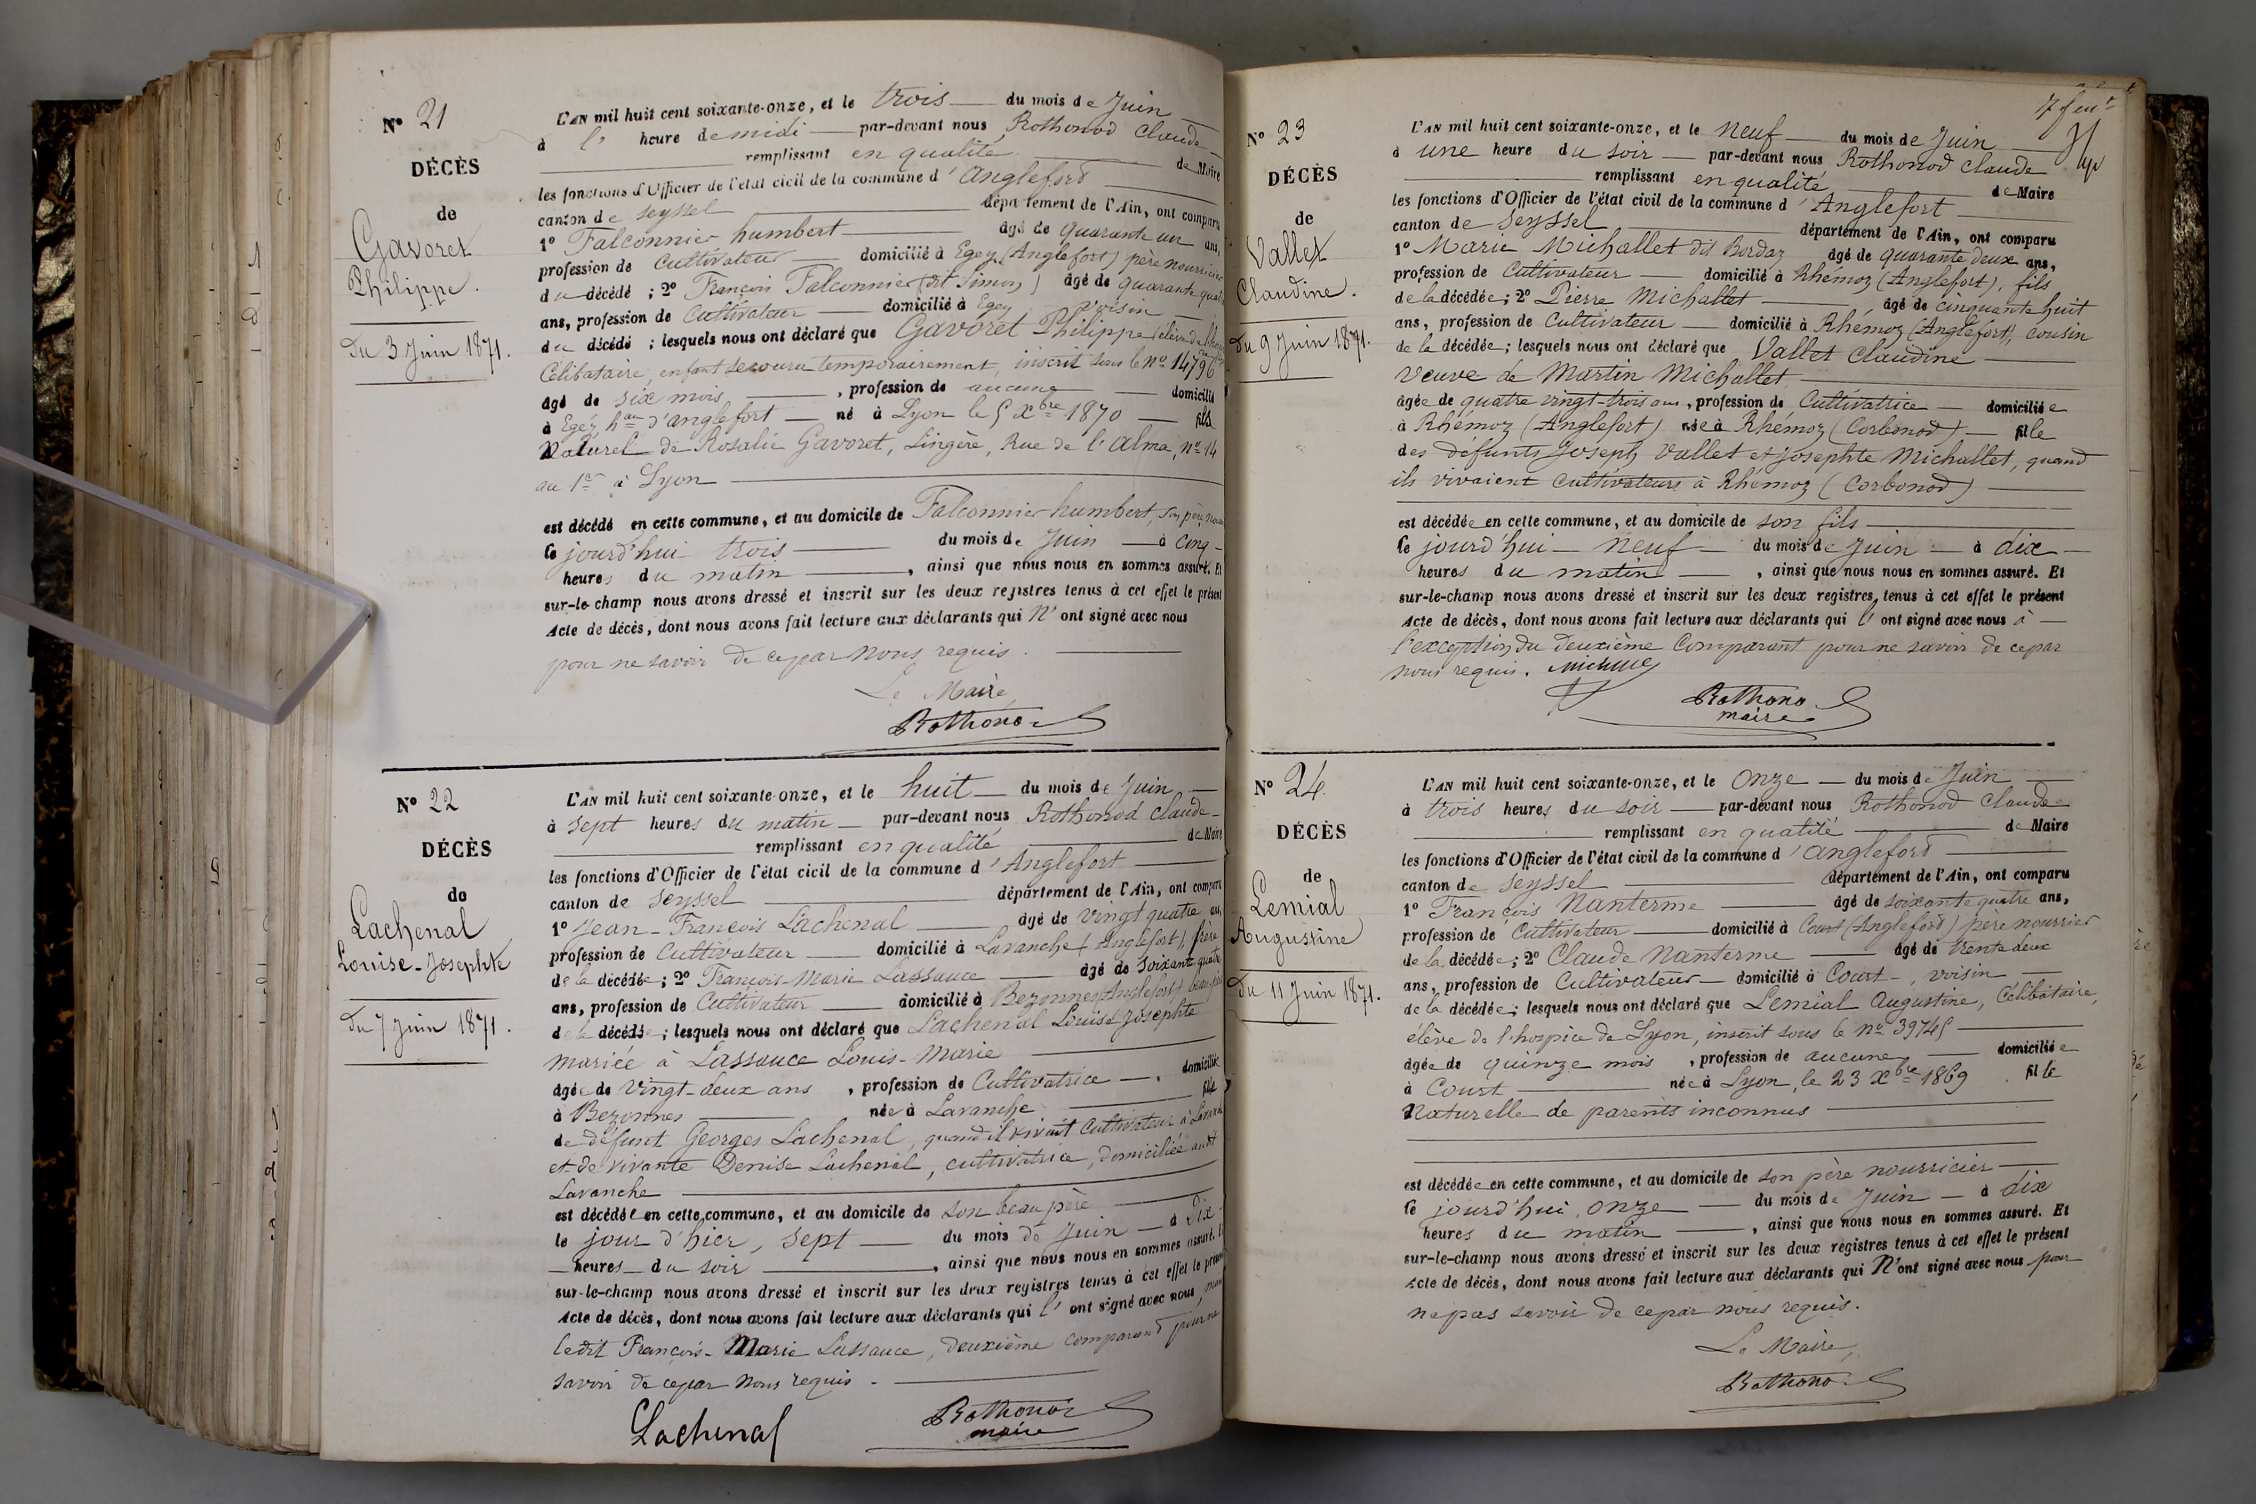 N° 21
DÉCÈS
de
Gavoret
Philippe.
Du 3 Juin 1871.
L'AN mil huit cent soixante-onze, et le trois du mois de Juin
à l' heure de midi par-devant nous Rothonod Claude
remplissant en qualité de Maire
les fonctions d'Officier de l'état civil de la commune d'Anglefort
canton de Seyssel département de l'Ain, ont comparu
1° Falconnier humbert âgé de quarante un ans,
profession de Cultivateur domicilié à Egey (Anglefort) père nourricier
du décédé ; 2° François Falconnier (dit Simon) âgé de quarante quatre
ans, profession de Cultivateur domicilié à Egey voisin
du décédé ; lesquels nous ont déclaré que Gavoret Philippe
Célibataire, enfant secouru temporairement, inscrit sous le N° 14796
âgé de six mois, profession de aucune domicilié
à Egey, han d'anglefort né à Lyon le 5 Xbre 1870 fils
Naturel de Rosalie Gavoret, Lingère, Rue de l'Alma, N° 14
au 1er à Lyon
est décédé en cette commune, et au domicile de Falconnier humbert, son père
le jourd'hui trois du mois de Juin à cinq
heures du matin, ainsi que nous nous en sommes assuré. Et
sur-le-champ nous avons dressé et inscrit sur les deux registres tenus à cet effet le présent
Acte de décès, dont nous avons fait lecture aux déclarants qui N'ont signé avec nous
pour ne savoir de ce par nous requis.
Le Maire
Rothonod
N° 22
DÉCÈS
de
Lachenal
Louise-Josephte
Du 7 Juin 1871.
L'AN mil huit cent soixante-onze, et le huit du mois de Juin
à sept heures du matin par-devant nous Rothonod Claude
remplissant en qualité de Maire
les fonctions d'Officier de l'état civil de la commune d'Anglefort
canton de Seyssel département de l'Ain, ont comparu
1° Jean-François Lachenal âgé de vingt quatre ans,
profession de Cultivateur domicilié à Lavanche (Anglefort), frère
de la décédée ; 2° François-Marie Lassauce âgé de soixante quatre
ans, profession de Cultivateur domicilié à Bezonnes (Anglefort) beau père
de la décédée ; lesquels nous ont déclaré que Lachenal Louise Josephte
mariée à Lassauce Louis-Marie
âgée de vingt-deux ans, profession de Cultivatrice, domiciliée
à Bezonnes née à Lavanche fille
de défunt Georges Lachenal, quand il vivait Cultivateur à Lavanche
et de vivante Denise Lachenal, cultivatrice, domiciliée audt
Lavanche
est décédée en cette commune, et au domicile de son beau père
le jour d'hier, sept du mois de Juin à dix
heures du soir, ainsi que nous nous en sommes assuré. Et
sur-le-champ nous avons dressé et inscrit sur les deux registres tenus à cet effet le présent
Acte de décès, dont nous avons fait lecture aux déclarants qui l'ont signé avec nous,
ledit François-Marie Lassauce, deuxième comparant pour ne
savoir de ce par nous requis.
Lachenal
Rothonod
maire
7 feuet
N° 23
DÉCÈS
de
Vallet
Claudine.
Du 9 Juin 1871.
L'AN mil huit cent soixante-onze, et le neuf du mois de Juin
à une heure du soir par-devant nous Rothonod Claude
remplissant en qualité de Maire
les fonctions d'Officier de l'état civil de la commune d'Anglefort
canton de Seyssel département de l'Ain, ont comparu
1° Marie Michallet dit Bordaz âgé de quarante deux ans,
profession de Cultivateur domicilié à Rhémoz (Anglefort), fils
de la décédée ; 2° Pierre Michallet âgé de cinquante huit
ans, profession de Cultivateur domicilié à Rhémoz (Anglefort), cousin
de la décédée ; lesquels nous ont déclaré que Vallet Claudine
Veuve de Martin Michallet
âgée de quatre vingt-trois ans, profession de Cultivatrice domiciliée
à Rhémoz (Anglefort) née à Rhémoz (Corbonod) fille
des défunts Joseph Vallet et Josephte Michallet, quand
ils vivaient Cultivateurs à Rhémoz (Corbonod)
est décédée en cette commune, et au domicile de son fils
le jourd'hui neuf du mois de Juin à dix
heures du matin, ainsi que nous nous en sommes assuré. Et
sur-le-champ nous avons dressé et inscrit sur les deux registres tenus à cet effet le présent
Acte de décès, dont nous avons fait lecture aux déclarants qui l'ont signé avec nous à
l'exception du deuxième Comparant pour ne savoir de ce par
nous requis.
Rothonod
maire
N° 24
DÉCÈS
de
Lemial
Augustine
Du 11 Juin 1871.
L'AN mil huit cent soixante-onze, et le onze du mois de Juin
à trois heures du soir par-devant nous Rothonod Claude
remplissant en qualité de Maire
les fonctions d'Officier de l'état civil de la commune d'anglefort
canton de Seyssel département de l'Ain, ont comparu
1° François Nanterme âgé de soixante quatre ans,
profession de Cultivateur domicilié à Court (Anglefort) père nourricier
de la décédée ; 2° Claude Nanterme âgé de trente deux
ans, profession de Cultivateur domicilié à Court, voisin
de la décédée ; lesquels nous ont déclaré que Lemial Augustine, Célibataire,
élève de l'hospice de Lyon, inscrit sous le N° 39745
âgée de quinze mois, profession de aucune domiciliée
à Court née à Lyon, le 23 Xbre 1869 fille
Naturelle de parents inconnus
est décédée en cette commune, et au domicile de son père nourricier
le jourd'hui, onze du mois de Juin à dix
heures du matin, ainsi que nous nous en sommes assuré. Et
sur-le-champ nous avons dressé et inscrit sur les deux registres tenus à cet effet le présent
Acte de décès, dont nous avons fait lecture aux déclarants qui N'ont signé avec nous pour
ne pas savoir de ce par nous requis.
Le Maire,
Rothonod